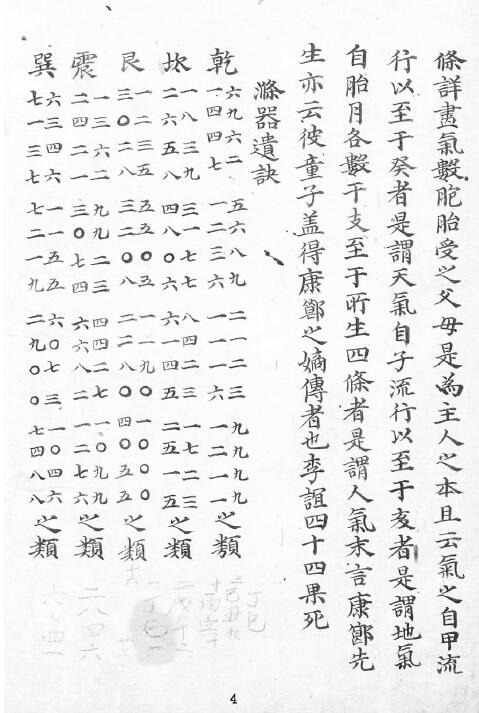 條詳盡氣數胞胎受之父母是為主人之本且云氣之自甲流
行以至于癸者是謂天氣自子流行以至于亥者是謂地氣
自胎月各數干支至于所生四條者是謂人氣末言康節先
生亦云彼童子盖得康節之嫡傳者也李誼四十四果死
滌器遺訣
乾
六九六二 五六八九 二一二三 九九九九
一四四七 一二三六 一一一六 一二一一
之類
坎
一八三九 三一七七 八四二三 一七二三
二六五八 四八〇六 六一四五 二五一五
之類
艮
一二三五 五五〇五 一一九〇 一〇〇〇
三〇二八 三二〇八 二二八〇 四〇五五
之類
震
一三六二 九九二三 四四二七 一〇九九
二四二一 三〇七四 六六八二 一二七六
之類
巽
六三四六 一一五五 六〇七三 一〇四六
七一三七 七二一九 二九〇〇 七四八八
之類
丁巳
二八四六
4